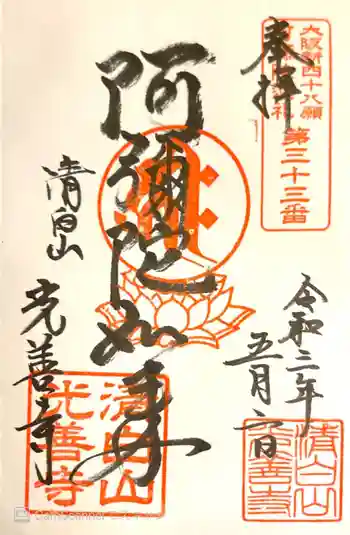 奉拝
大阪新四十八願
第三十三番
阿彌陀如来
清白山
光善寺
令和三年
五月六日
清白山
光善寺
清白山
光善寺
CamScanner